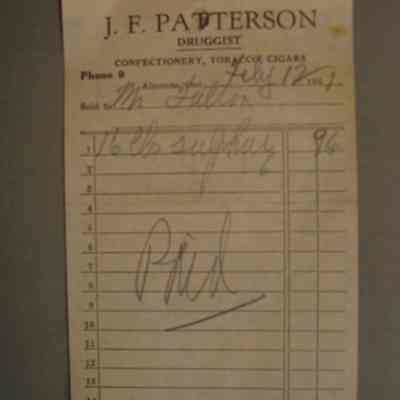 J. F. PATTERSON
DRUGGIST
CONFECTIONERY, TOBACCO, CIGARS
Phone 9
12 19
Sold to Mr Fulton
1 16 lb sulphur 96
2
3
4
5
6
Paid
7
8
9
10
11
12
13